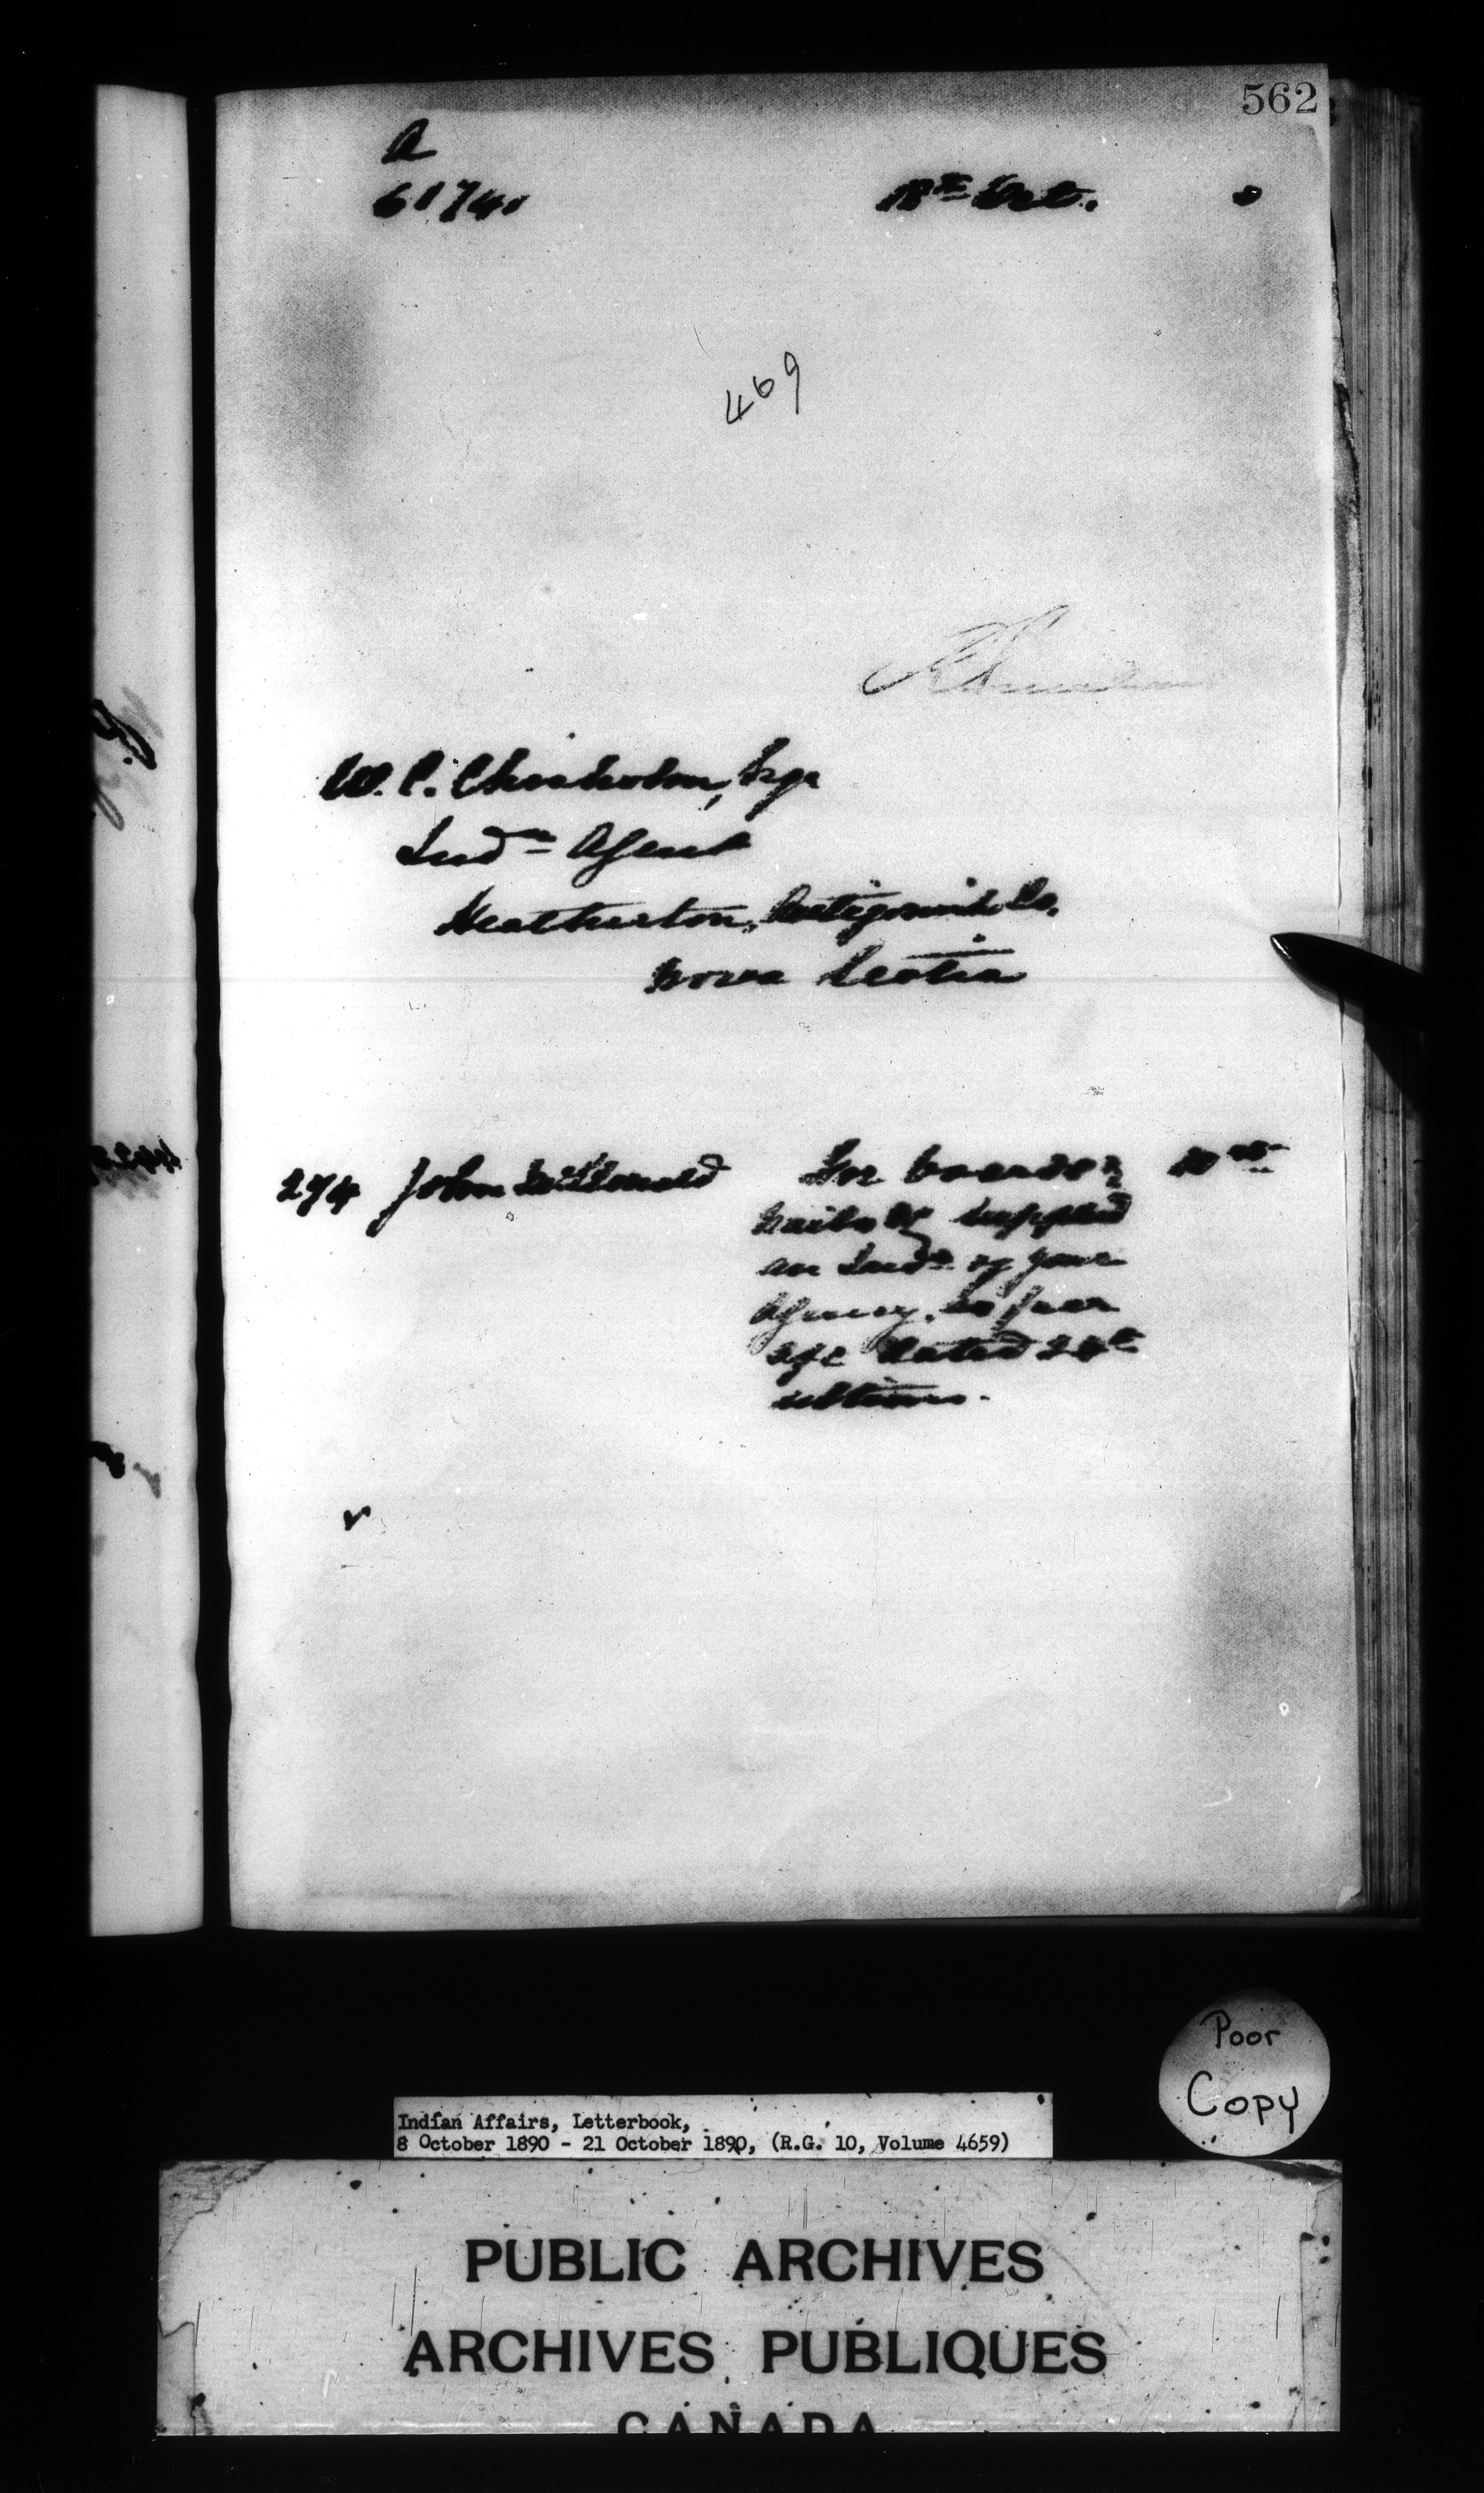 562
A
61741
18th Oct. 0
469
W. C. Chisholm, Esqr
Indn Agent
Heatherton, Antigonish Co.
Nova Scotia
274 John McDonald For boards & 10 00
nails &c supplied
an Indn of your
Agency, as per
a/c dated 24th
ultimo.
Poor
Copy
Indian Affairs, Letterbook,
8 October 1890 - 21 October 1890, (R.G. 10, Volume 4659)
PUBLIC ARCHIVES
ARCHIVES PUBLIQUES
CANADA